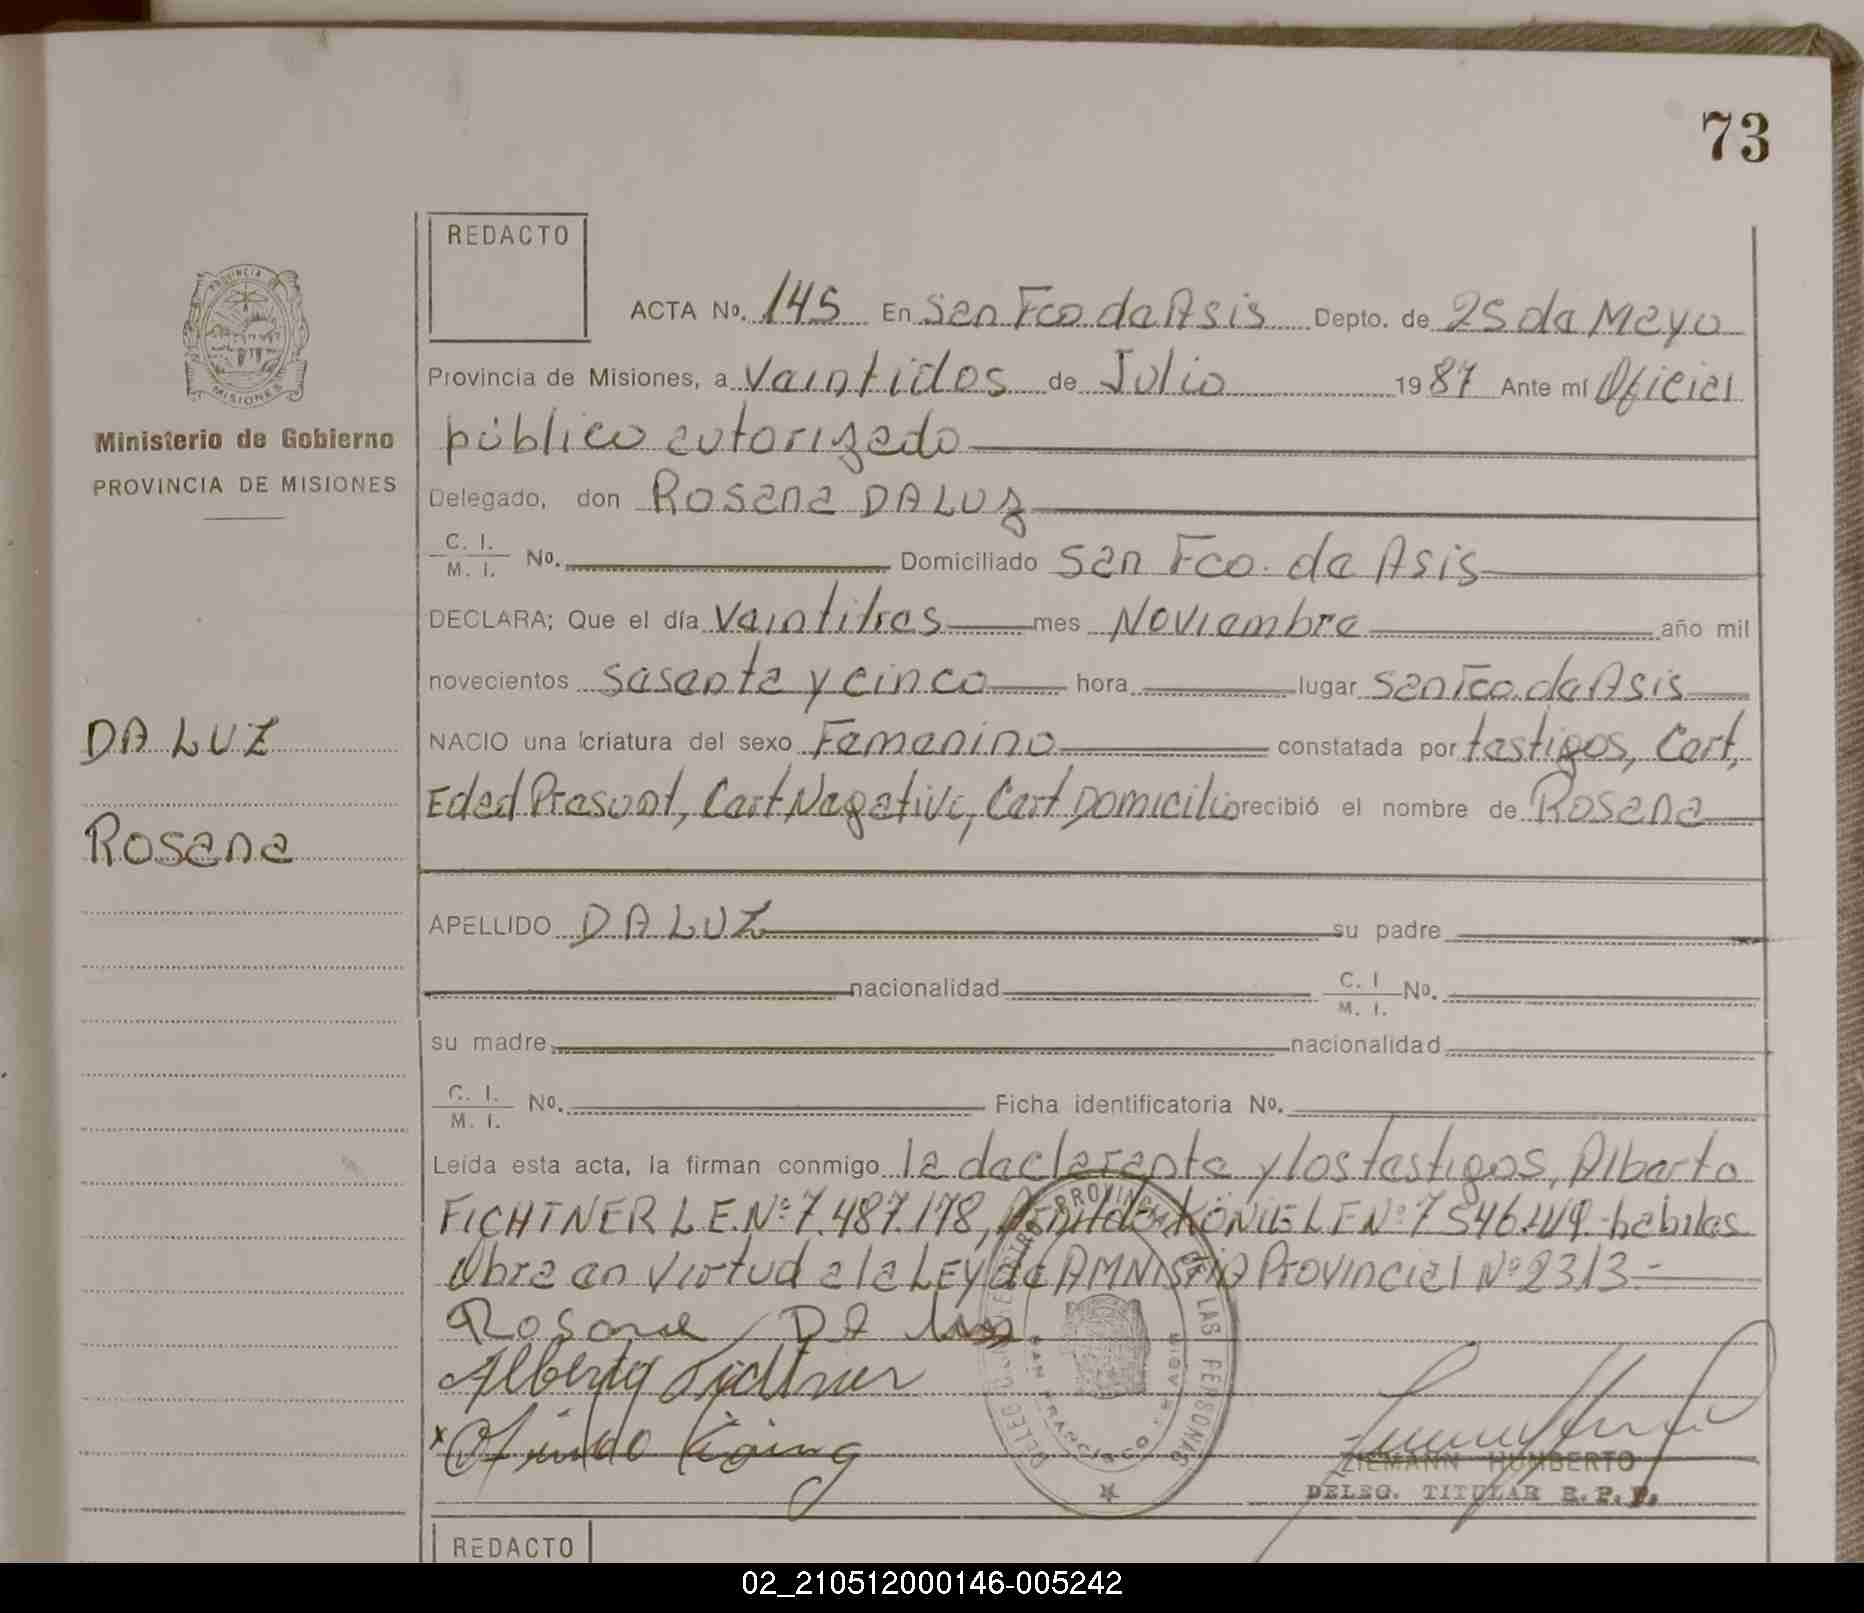 73
REDACTO
ACTA No. 145 En San Fco de Asis Depto. de 25 de Mayo
Provincia de Misiones, a Veintidos de Julio 1987 Ante mí Oficial
público autorizado
Delegado, don Rosana DA LUZ
C. I. M. I. No. Domiciliado San Fco. de Asis
DECLARA; Que el día Veintitres mes Noviembre año mil
novecientos sesenta y cinco hora lugar San Fco. de Asis
NACIO una criatura del sexo Femenino constatada por testigos, Cert,
Edad Presunt, Cert Negativa, Cert Domicilio recibió el nombre de Rosana
APELLIDO DA LUZ su padre
nacionalidad C. I M. I. No.
su madre nacionalidad
C. I. M. I. No. Ficha identificatoria No.
Leída esta acta, la firman conmigo la declarante y los testigos, Alberto
FICHTNER L.E. Nº 7.487.178, KÖNIG L E Nº 7 546. habiles
Obra en Virtud a la LEY de AMNISTIA Provincial Nº 2313-
Rosana DA luz
Alberto Fichtner
x
ZIEMANN HUMBERTO
DELEG. TITULAR R. P. P.
PROVINCIA DE MISIONES
Ministerio de Gobierno
PROVINCIA DE MISIONES
DA LUZ
Rosana
DE LAS PERSONAS
SAN FRANCISCO
REDACTO
02_210512000146-005242